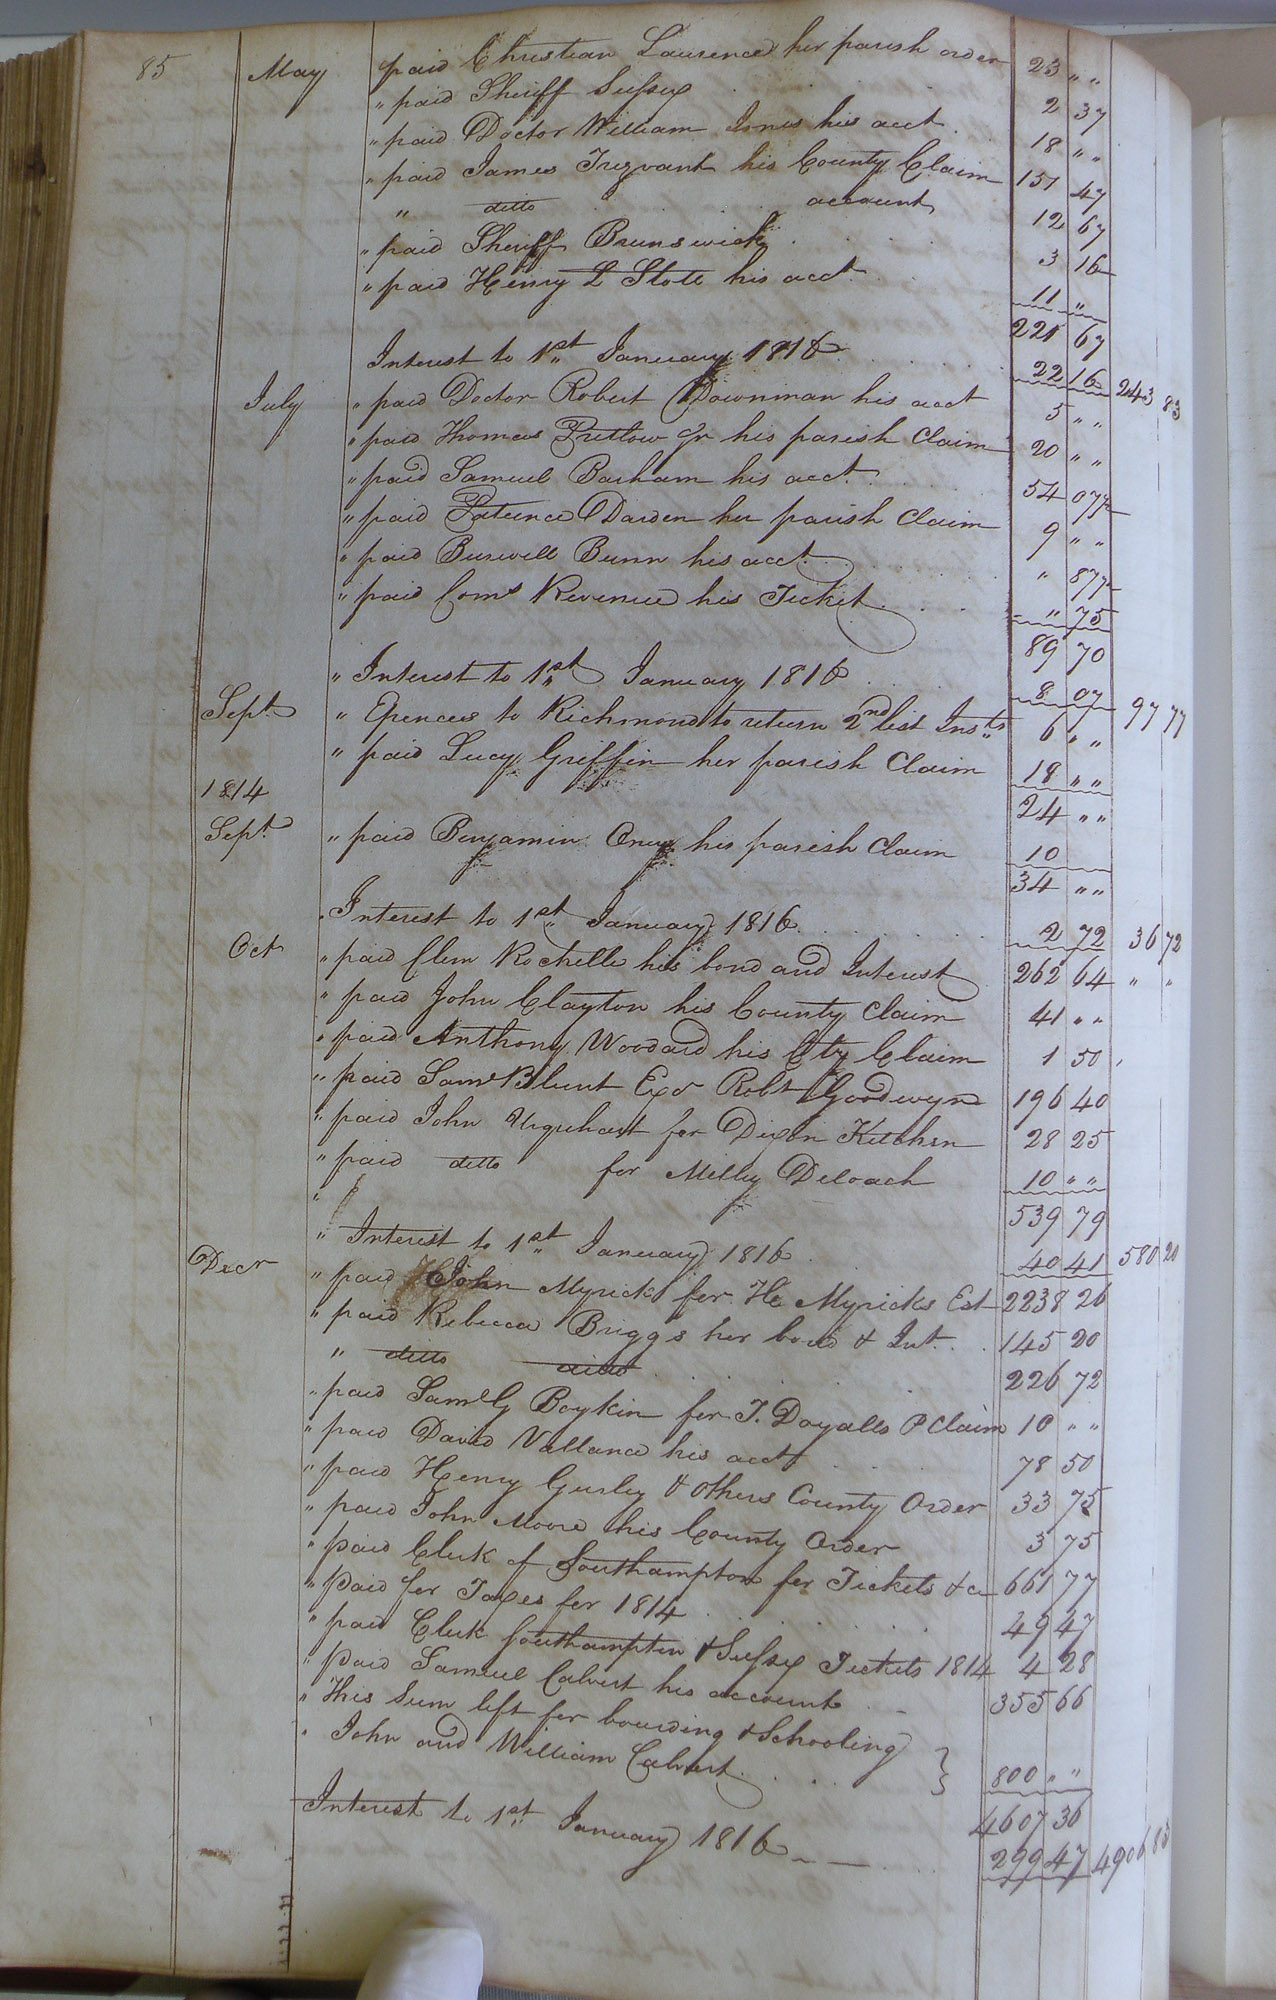 85 May paid Christian Laurence her parish order 23 " "
" paid Sheriff Sussex 2 37
" paid Doctor William Jones his acct. 18 " "
" paid James Trezvant his County Claim 151 47
" ditto account 12 67
" paid Sheriff Brunswick 3 16
" paid Henry L Stote his acct 11 "
221 67
Interest to 1st January 1816 22 16 243 83
July " paid Doctor Robert Downman his acct 5 " "
" paid Thomas Pretlow Jr his parish Claim 20 " "
" paid Samuel Barham his acct. 54 07½
" paid Patience Darden her parish Claim 9 " "
" paid Burwell Bunn his acct " 87½
" paid Coms Revenue his Ticket " 75
89 70
" Interest to 1st January 1816 8 07 97 77
Sept. " Epences to Richmond to return 2nd list Insts 6 " "
" paid Lucy Griffin her parish Claim 18 " "
1814 24 " "
Sept. " paid Benjamin Oney his parish Claim 10
34 " "
Interest to 1st January 1816 2 72 36 72
Oct " paid Clem Rochelle his bond and Interest 262 64 " "
" paid John Clayton his County Claim 41 " "
" paid Anthony Woodard his Cty Claim 1 50
" paid Saml Blunt Exr Robt Goodwyn 196 40
" paid John Urquhart for Dixon Kitchen 28 25
" paid ditto for Milly Deloach 10 " "
" 539 79
" Interest to 1st January 1816 40 41 580 20
Decr " paid John Myrick for He Myricks Est 2238 26
" paid Rebecca Briggs her bond & Int. 145 20
" ditto ditto 226 72
" paid Saml G Boykin for T. Doyalls P Claim 10 " "
" paid David Vallance his acct 78 50
" paid Henry Gurley & others County Order 33 75
" paid John Moore his County Order 3 75
" paid Clerk of Southampton for Tickets &c 661 77
" Paid for Taxes for 1814 49 47
" paid Clerk Southampton & Sussex Tickets 1814 4 28
" Paid Samuel Calvert his account 355 66
" This Sum left for bourding & Schooling
" John and William Calvert 800 " "
4607 36
Interest to 1st January 1816 299 47 4906 83